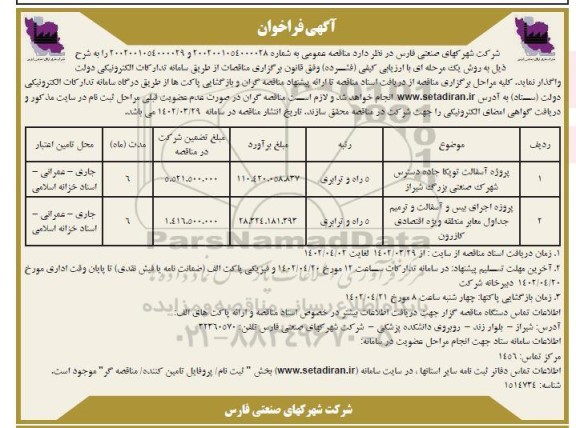 آگهی فراخوان
شرکت شهرکهای صنعتی فارس در نظر دارد مناقصه عمومی به شماره ۲۰۰۲۰۰۱۰۵۴۰۰۰۰۲۸ و ۲۰۰۲۰۰۱۰۵۴۰۰۰۰۲۹ را به شرح
ذیل به روش یک مرحله ای با ارزیابی کیفی (فشرده) وفق قانون برگزاری مناقصات از طریق سامانه تدارکات الکترونیکی دولت
واگذار نماید. کلیه مراحل برگزاری مناقصه از دریافت اسناد مناقصه تا ارائه پیشنهاد مناقصه گران و بازگشایی پاکت ها از طریق درگاه سامانه تدارکات الکترونیکی
دولت (ستاد) به آدرس www.setadiran.ir انجام خواهد شد و لازم است مناقصه گران در صورت عدم عضویت قبلی مراحل ثبت نام در سایت مذکور و
دریافت گواهی امضای الکترونیکی را جهت شرکت در مناقصه محقق سازند. تاریخ انتشار مناقصه در سامانه ۱۴۰۲/۰۳/۲۹ می باشد.
ردیف موضوع رتبه مبلغ برآورد مبلغ تضمین شرکت در مناقصه مدت (ماه) محل تامین اعتبار
۱ پروژه آسفالت توپکا جاده دسترسی شهرک صنعتی بزرگ شیراز ۵ راه و ترابری ۱۱۰.۴۲۰.۰۵۸.۸۳۷ ۵.۵۲۱.۵۰۰.۰۰۰ ۶ جاری – عمرانی – اسناد خزانه اسلامی
۲ پروژه اجرای بیس و آسفالت و ترمیم جداول معابر منطقه ویژه اقتصادی کازرون ۵ راه و ترابری ۲۸.۳۲۴.۱۸۱.۳۹۳ ۱.۴۱۶.۵۰۰.۰۰۰ ۶ جاری – عمرانی – اسناد خزانه اسلامی
۱. زمان دریافت اسناد مناقصه از سایت : از ۱۴۰۲/۰۳/۲۹ لغایت ۱۴۰۲/۰۴/۰۲
۲. آخرین مهلت تسلیم پیشنهاد: در سامانه تدارکات ساعت ۱۲ مورخ ۱۴۰۲/۰۴/۲۰ و فیزیکی پاکت الف (ضمانت نامه یا فیش نقدی) تا پایان وقت اداری مورخ
۱۴۰۲/۰۴/۲۰ دبیرخانه شرکت
۳. زمان بازگشایی پاکتها: چهار شنبه ساعت ۸ مورخ ۱۴۰۲/۰۴/۲۱
اطلاعات تماس دستگاه مناقصه گزار جهت دریافت اطلاعات بیشتر در خصوص اسناد مناقصه و ارائه پاکت های الف...
آدرس: شیراز – بلوار زند – روبروی دانشکده پزشکی – شرکت شهرکهای صنعتی فارس تلفن: ۳۲۳۶۰۵۷۰
اطلاعات سامانه ستاد جهت انجام مراحل عضویت در سامانه:
مرکز تماس: ۱۴۵۶
اطلاعات تماس دفاتر ثبت نامه سایر استانها ، در سایت سامانه (www.setadiran.ir) بخش " ثبت نام/ پروفایل تامین کننده/ مناقصه گر" موجود است.
شناسه: ۱۵۱۴۷۳۴
شرکت شهرکهای صنعتی فارس
ParsNamadData
۰۲۱-۸۸۳۴۹۶۷۰-۵